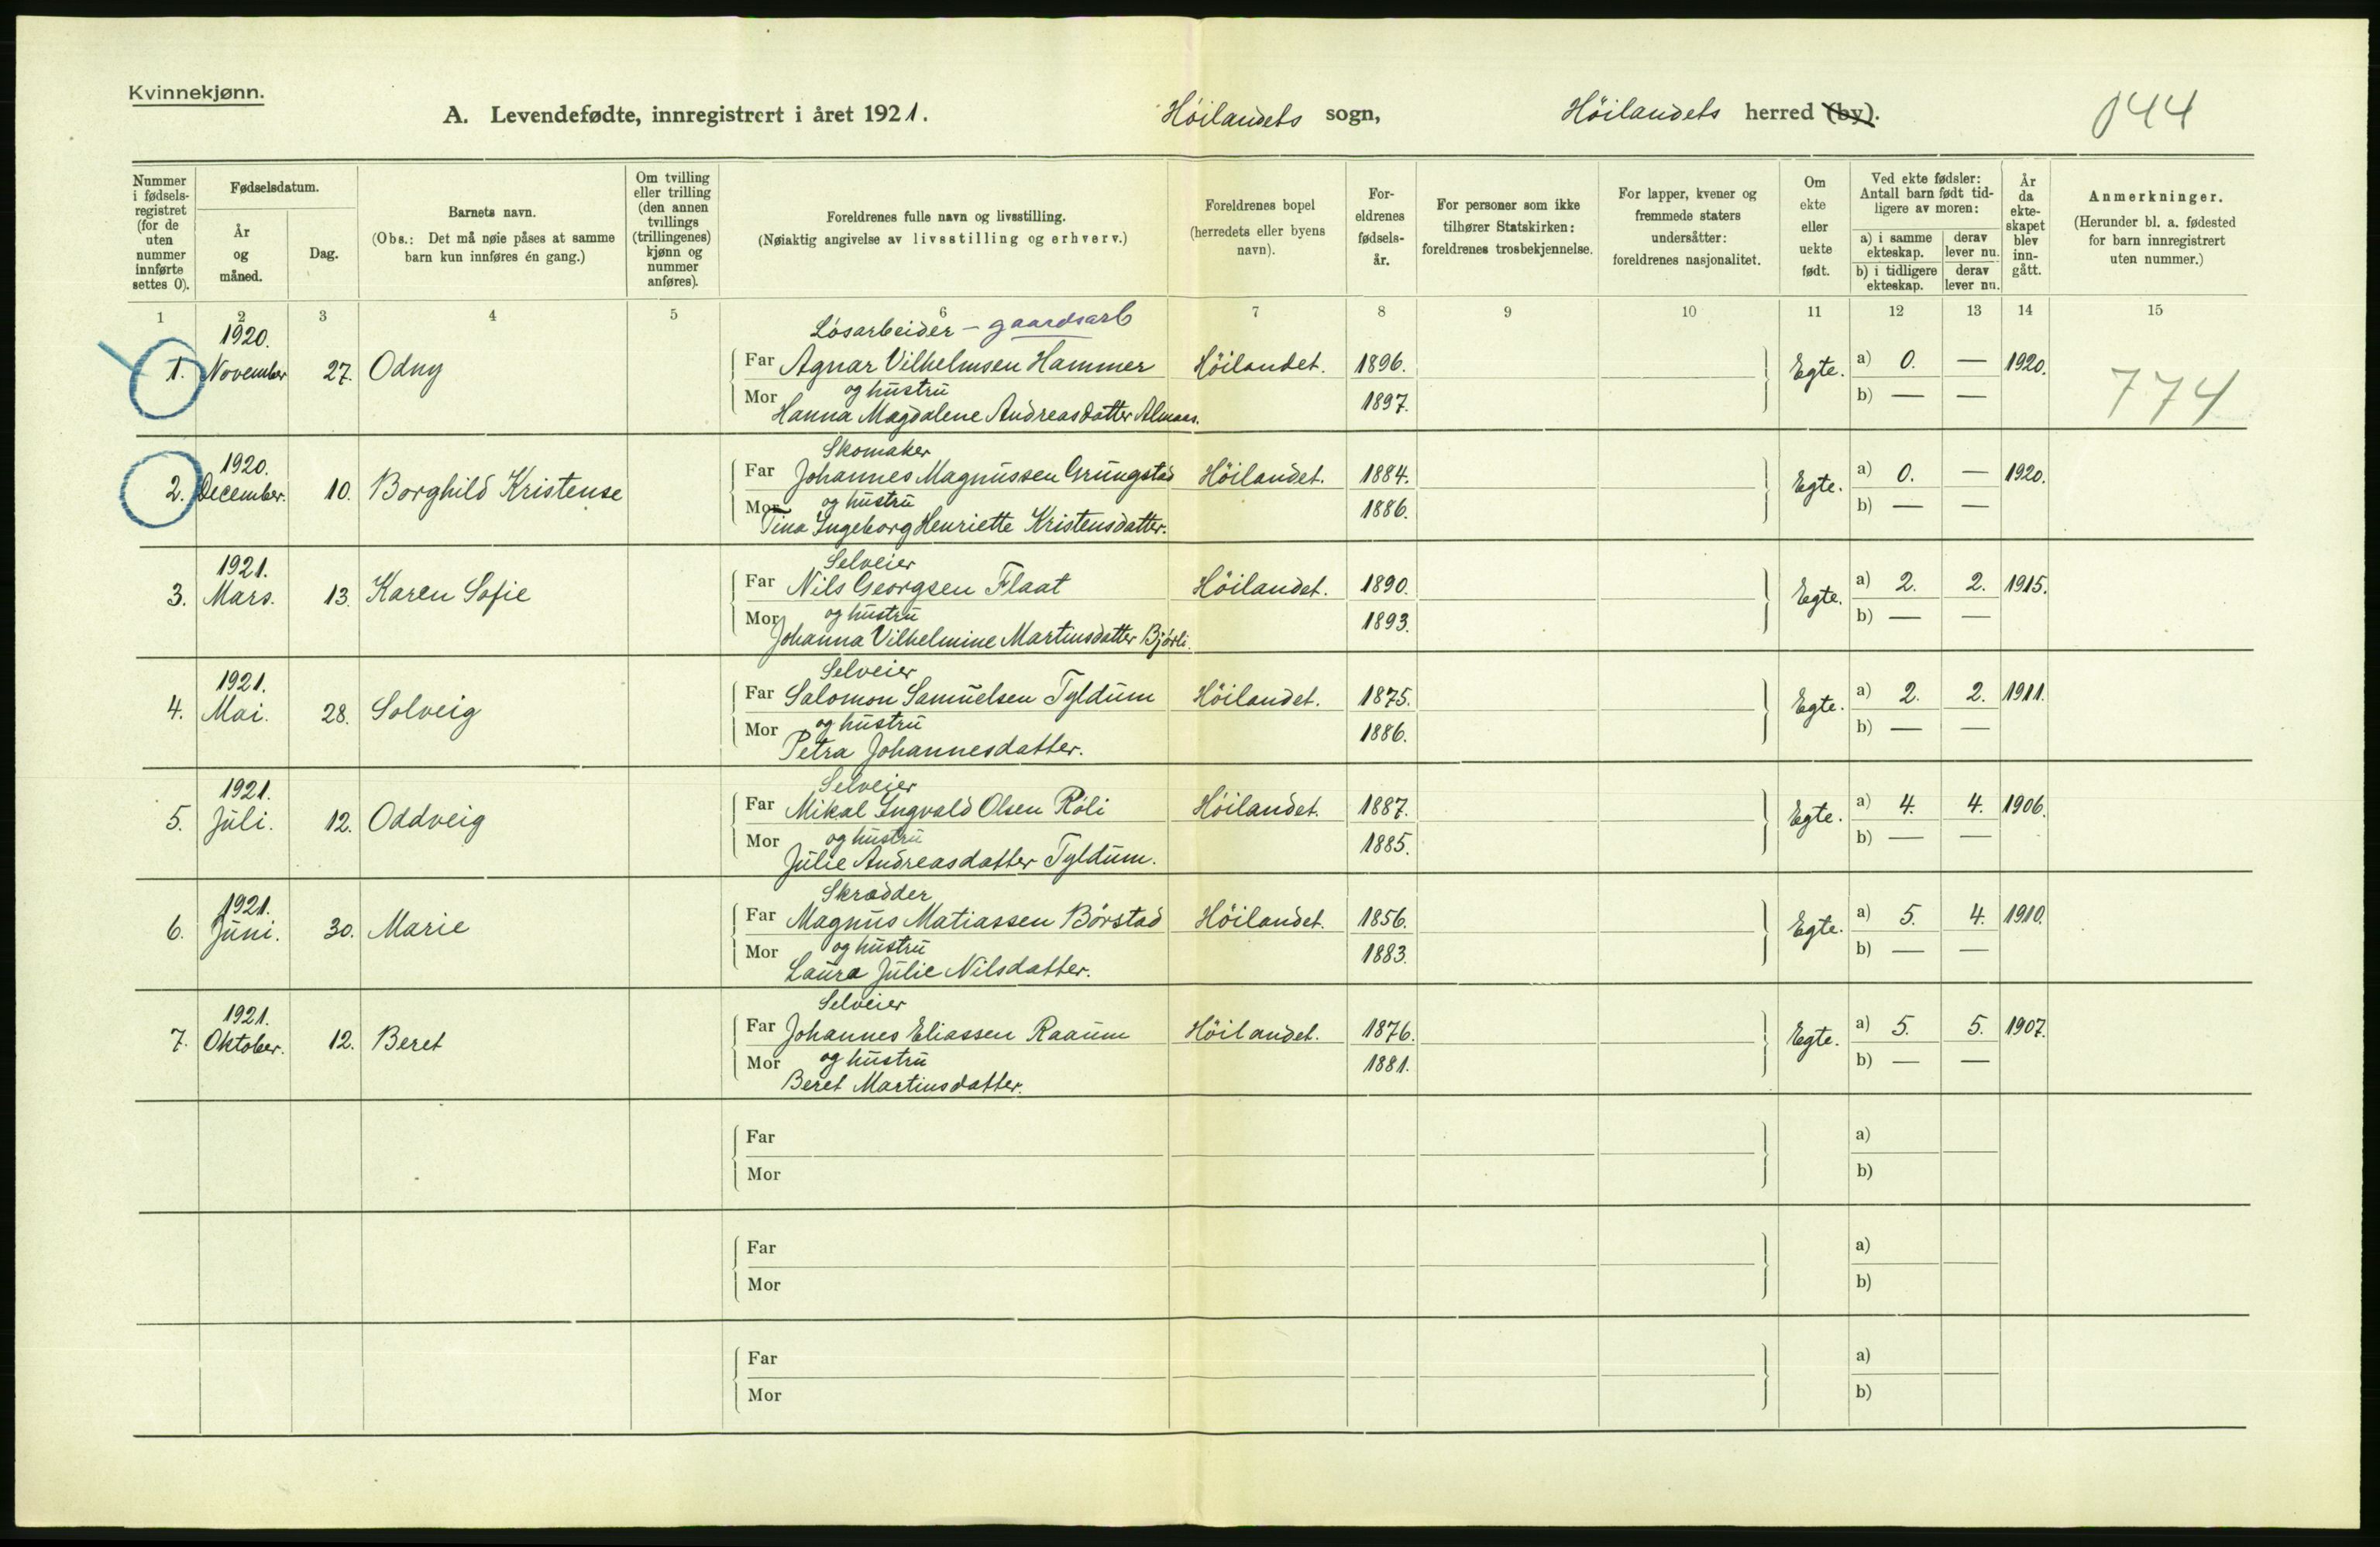 Kvinnekjønn.
A. Levendefødte, innregistrert i året 1921. Höilandets sogn, Höilandets herred (by). 044
Nummer i fødselsregistret (for de uten nummer innførte settes 0).
Fødselsdatum.
År og måned.
Dag.
Barnets navn.
(Obs.: Det må nøie påses at samme barn kun innføres én gang.)
Om tvilling eller trilling (den annen tvillings (trillingenes) kjønn og nummer anføres).
Foreldrenes fulle navn og livsstilling.
(Nøiaktig angivelse av livsstilling og erhverv.)
Foreldrenes bopel (herredets eller byens navn).
Foreldrenes fødselsår.
For personer som ikke tilhører Statskirken: foreldrenes trosbekjennelse.
For lapper, kvener og fremmede staters undersåtter: foreldrenes nasjonalitet.
Om ekte eller uekte født.
Ved ekte fødsler: Antall barn født tidligere av moren:
a) i samme ekteskap. derav lever nu.
b) i tidligere ekteskap. derav lever nu.
År da ekteskapet blev inngått.
Anmerkninger.
(Herunder bl. a. fødested for barn innregistrert uten nummer.)
1 2 3 4 5 6 7 8 9 10 11 12 13 14 15
1920. Lösarbeider – gaardsarb
1. November 27. Odny Far Agnar Vilhelmsen Hammer Höilandet. 1896. Egte. a) 0. — 1920.
Mor og hustru 1897. b) — — 774
Hanna Magdalene Andreasdatter Almaas.
1920. Skomaker
2. December. 10. Borghild Kristense Far Johannes Magnussen Grungstad Höilandet. 1884. Egte. a) 0. — 1920.
Mor og hustru 1886. b) — —
Tina Ingeborg Henriette Kristensdatter.
1921. Selveier
3. Mars. 13. Karen Sofie Far Nils Georgsen Flaat Höilandet. 1890. Egte. a) 2. 2. 1915.
Mor og hustru 1893. b) — —
Johanna Vilhelmine Martinsdatter Björli.
1921. Selveier
4. Mai. 28. Solveig Far Salomon Samuelsen Tyldum Höilandet. 1875. Egte. a) 2. 2. 1911.
Mor og hustru 1886. b) — —
Petra Johannesdatter.
1921. Selveier
5. Juli. 12. Oddveig Far Mikal Ingvald Olsen Röli Höilandet. 1887. Egte. a) 4. 4. 1906.
Mor og hustru 1885. b) — —
Julie Andreasdatter Tyldum.
1921. Skrædder
6. Juni. 30. Marie Far Magnus Matiassen Börstad Höilandet. 1856. Egte. a) 5. 4. 1910.
Mor og hustru 1883. b) — —
Laura Julie Nilsdatter.
1921. Selveier
7. Oktober. 12. Beret Far Johannes Eliassen Raaum Höilandet. 1876. Egte. a) 5. 5. 1907.
Mor og hustru 1881. b) — —
Beret Martinsdatter.
Far a)
Mor b)
Far a)
Mor b)
Far a)
Mor b)